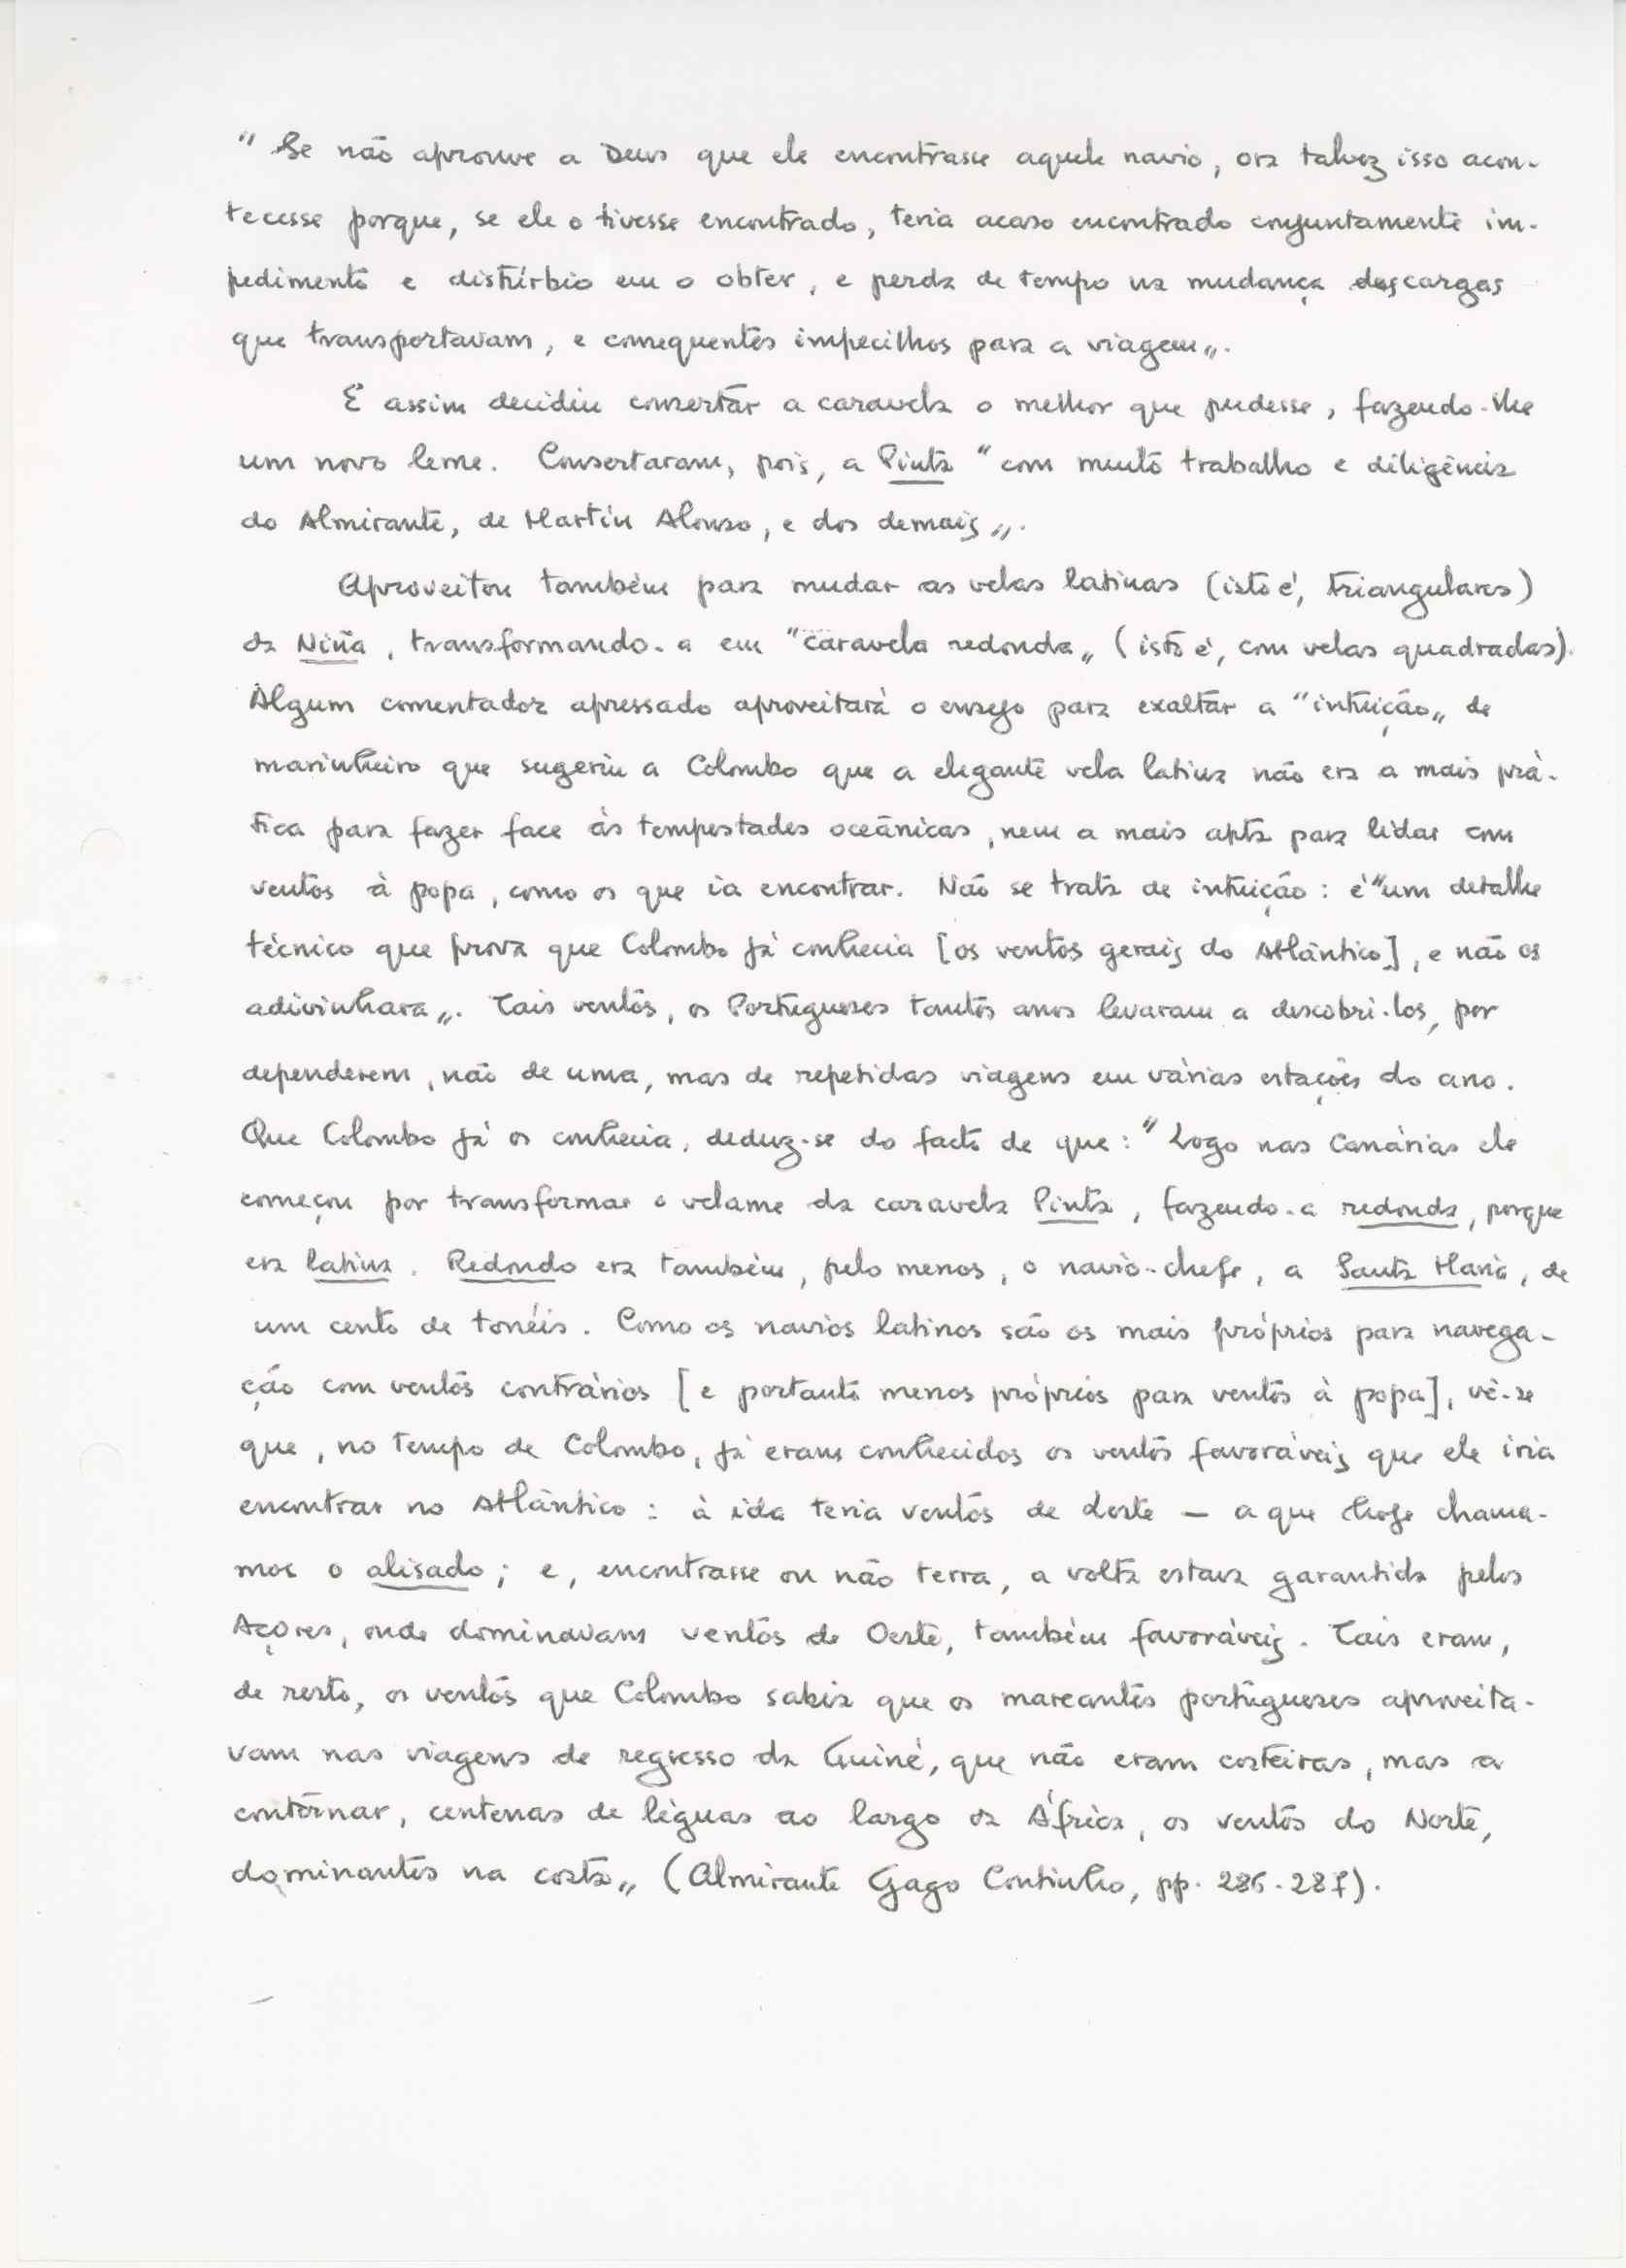 "Se não aprouve a Deus que ele encontrasse aquele navio, ora talvez isso acon-
tecesse porque, se ele o tivesse encontrado, teria acaso encontrado conjuntamente im-
pedimento e distúrbio em o obter, e perda de tempo na mudança das cargas
que transportavam, e consequentes impecilhos para a viagem„.
E assim decidiu consertar a caravela o melhor que pudesse, fazendo-lhe
um novo leme. Consertaram, pois, a Pinta "com muito trabalho e diligência
do Almirante, de Martín Alonso, e dos demais„.
Aproveitou também para mudar as velas latinas (isto é, triangulares)
da Niña, transformando-a em "caravela redonda„ (isto é, com velas quadradas).
Algum comentador apressado aproveitará o ensejo para exaltar a "intuição„ de
marinheiro que sugeriu a Colombo que a elegante vela latina não era a mais prá-
tica para fazer face às tempestades oceânicas, nem a mais apta para lidar com
ventos à popa, como os que ia encontrar. Não se trata de intuição: é "um detalhe
técnico que prova que Colombo já conhecia [os ventos gerais do Atlântico], e não os
adivinhara„. Tais ventos, os Portugueses tantos anos levaram a descobri-los, por
dependerem, não de uma, mas de repetidas viagens em várias estações do ano.
Que Colombo já os conhecia, deduz-se do facto de que: "Logo nas Canárias ele
começou por transformar o velame da caravela Pinta, fazendo-a redonda, porque
era latina. Redondo era também, pelo menos, o navio-chefe, a Santa Maria, de
um cento de tonéis. Como os navios latinos são os mais próprios para navega-
ção com ventos contrários [e portanto menos próprios para ventos à popa], vê-se
que, no tempo de Colombo, já eram conhecidos os ventos favoráveis que ele iria
encontrar no Atlântico: à ida teria ventos de Leste — a que hoje chama-
mos o alisado; e, encontrasse ou não terra, a volta estava garantida pelos
Açores, onde dominavam ventos de Oeste, também favoráveis. Tais eram,
de resto, os ventos que Colombo sabia que os mareantes portugueses aproveita-
vam nas viagens de regresso da Guiné, que não eram costeiras, mas a
contornar, centenas de léguas ao largo da África, os ventos do Norte,
dominantes na costa„ (Almirante Gago Coutinho, pp. 286-287).